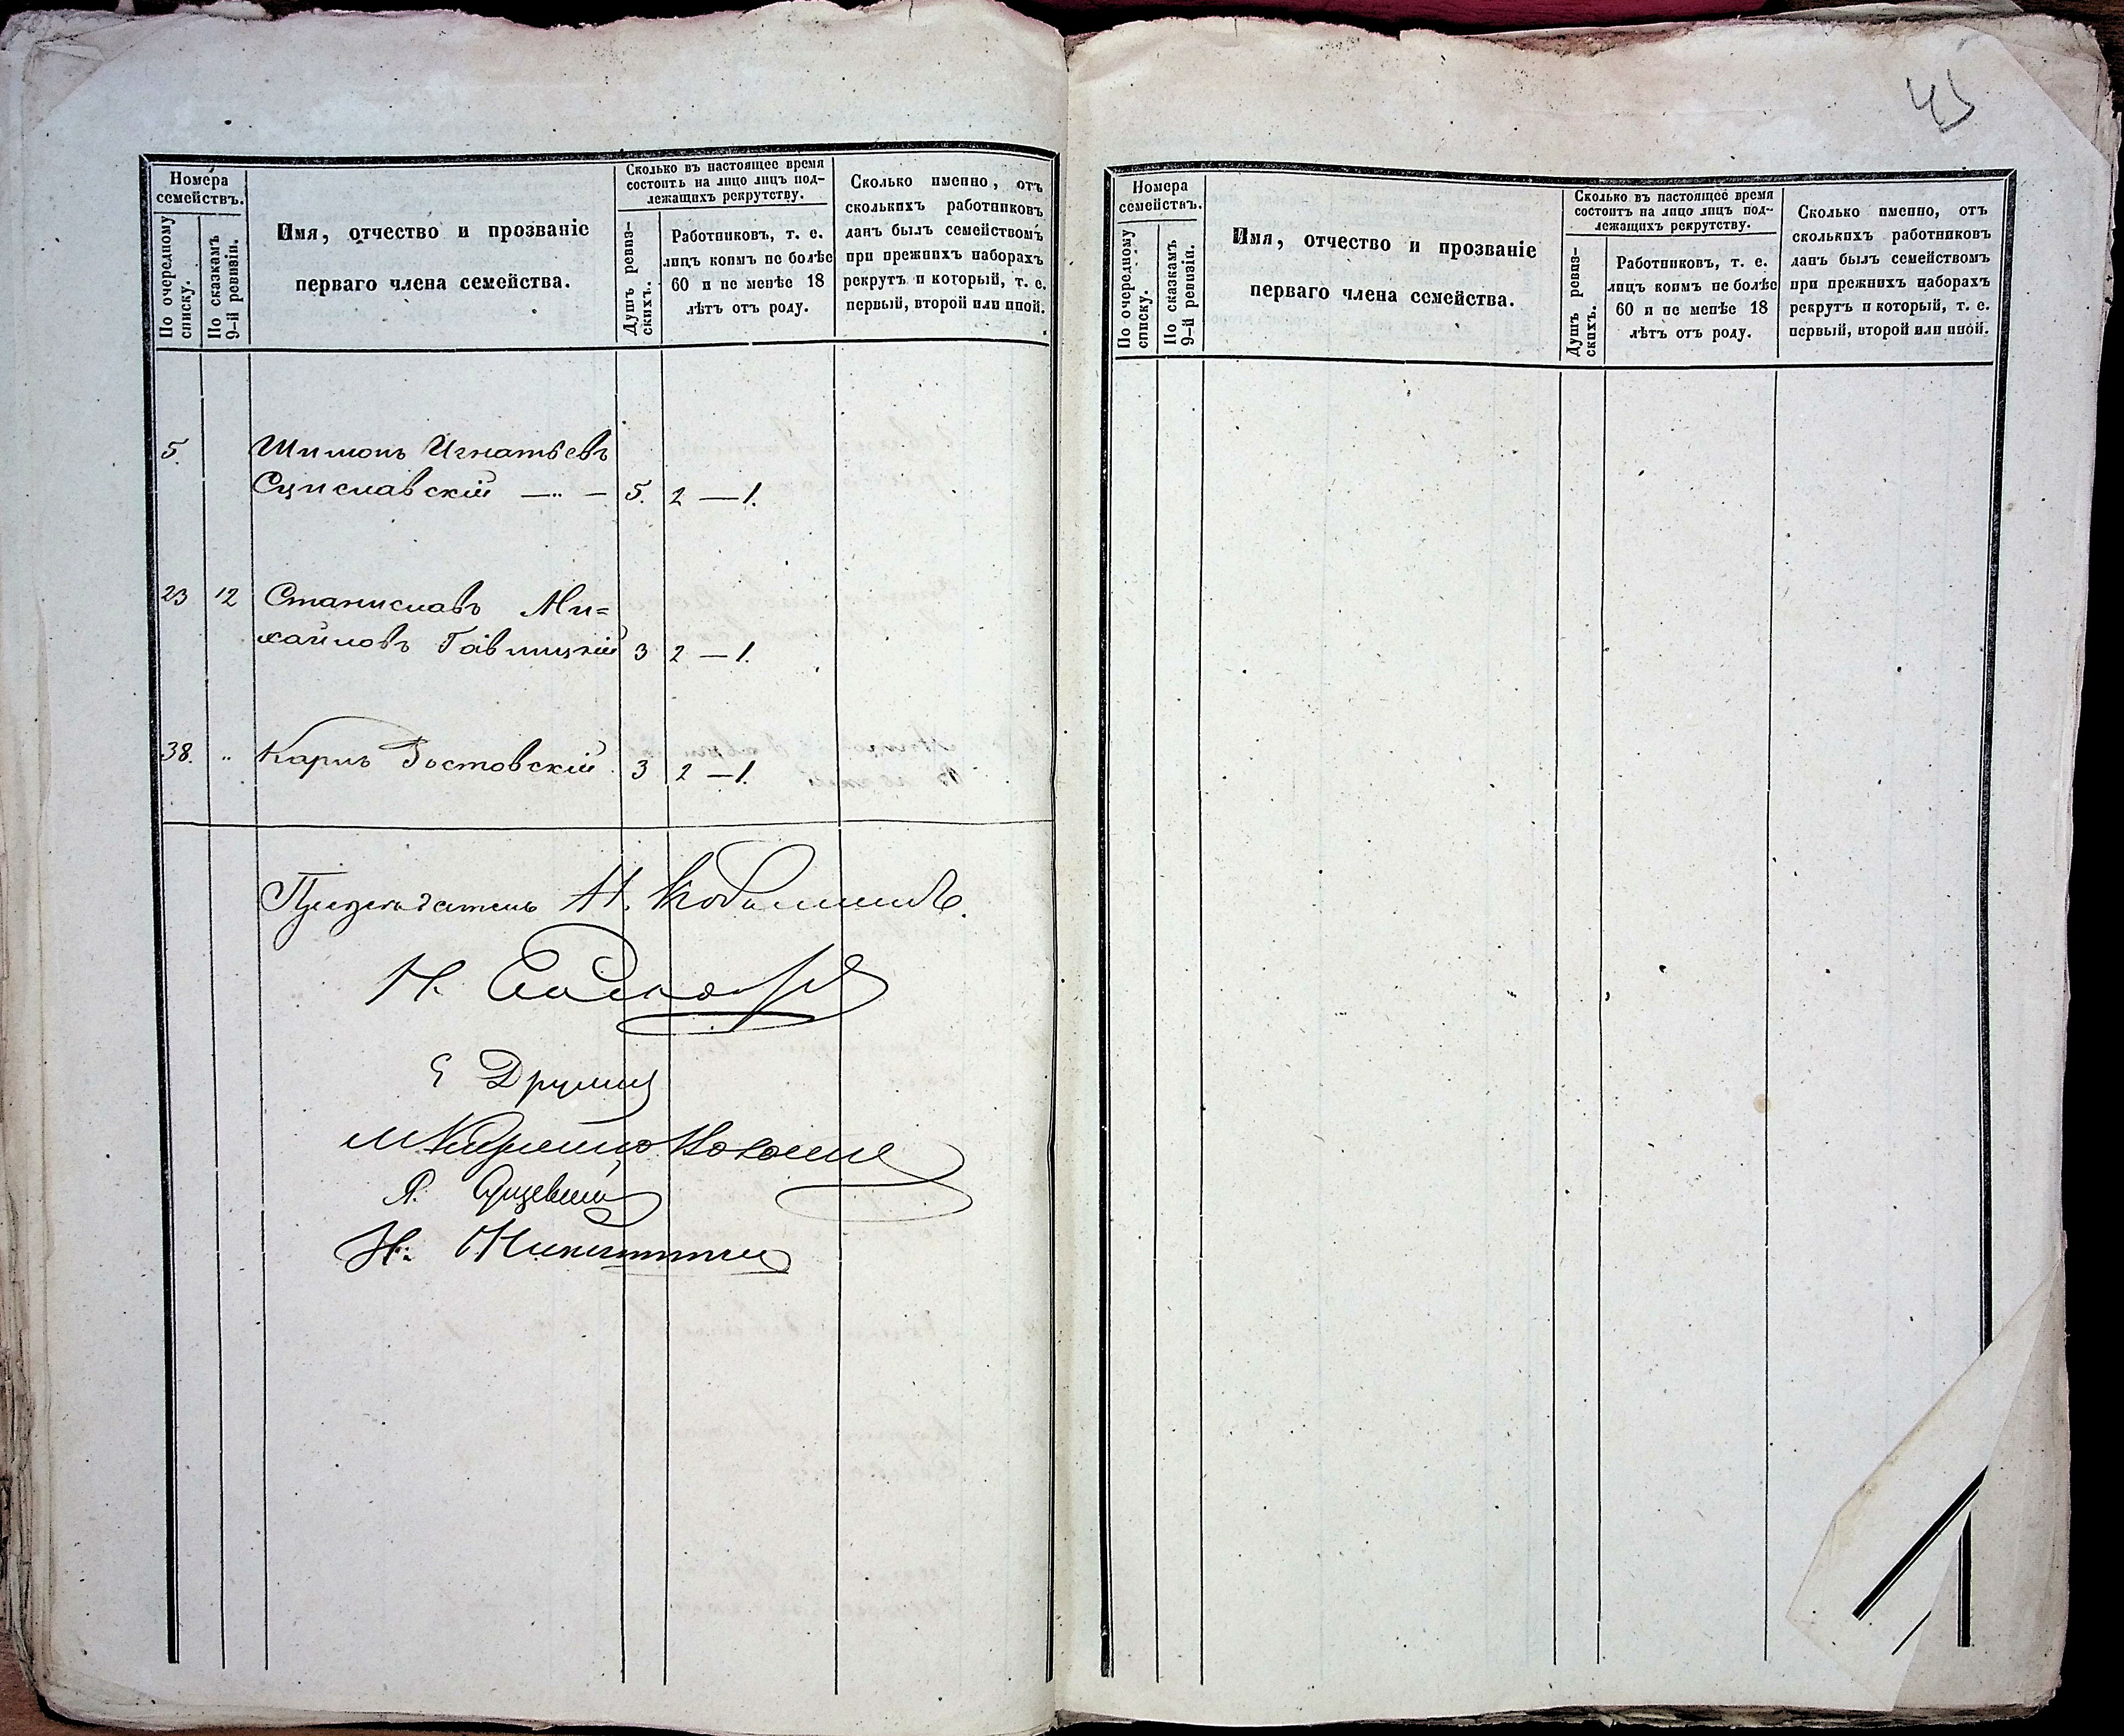 45
Номера
семействъ.
По очередному
списку.
По сказкамъ
9-й ревизіи.
Имя, отчество и прозваніе
перваго члена семейства.
Сколько въ настоящее время
состоитъ на лицо лицъ под-
лежащихъ рекрутству.
Душъ ревиз-
скихъ.
Работниковъ, т. е.
лицъ коимъ не болѣе
60 и не менѣе 18
лѣтъ отъ роду.
Сколько именно, отъ
сколькихъ работниковъ
данъ былъ семействомъ
при прежнихъ наборахъ
рекрутъ и который, т. е.
первый, второй или иной.
5. Шимонъ Игнатьевъ
Сциславскій — „ — 5. 2 — 1.
23 12 Станиславъ Ми=
хайловъ 3 2 — 1.
38. „ Карлъ 3 2 — 1.
Предсѣдатель Н.
Н.
Е Друцкій
М
А.
Н. Никитинъ
Номера
семействъ.
По очередному
списку.
По сказкамъ
9-й ревизіи.
Имя, отчество и прозваніе
перваго члена семейства.
Сколько въ настоящее время
состоитъ на лицо лицъ под-
лежащихъ рекрутству.
Душъ ревиз-
скихъ.
Работниковъ, т. е.
лицъ коимъ не болѣе
60 и не менѣе 18
лѣтъ отъ роду.
Сколько именно, отъ
сколькихъ работниковъ
данъ былъ семействомъ
при прежнихъ наборахъ
рекрутъ и который, т. е.
первый, второй или иной.